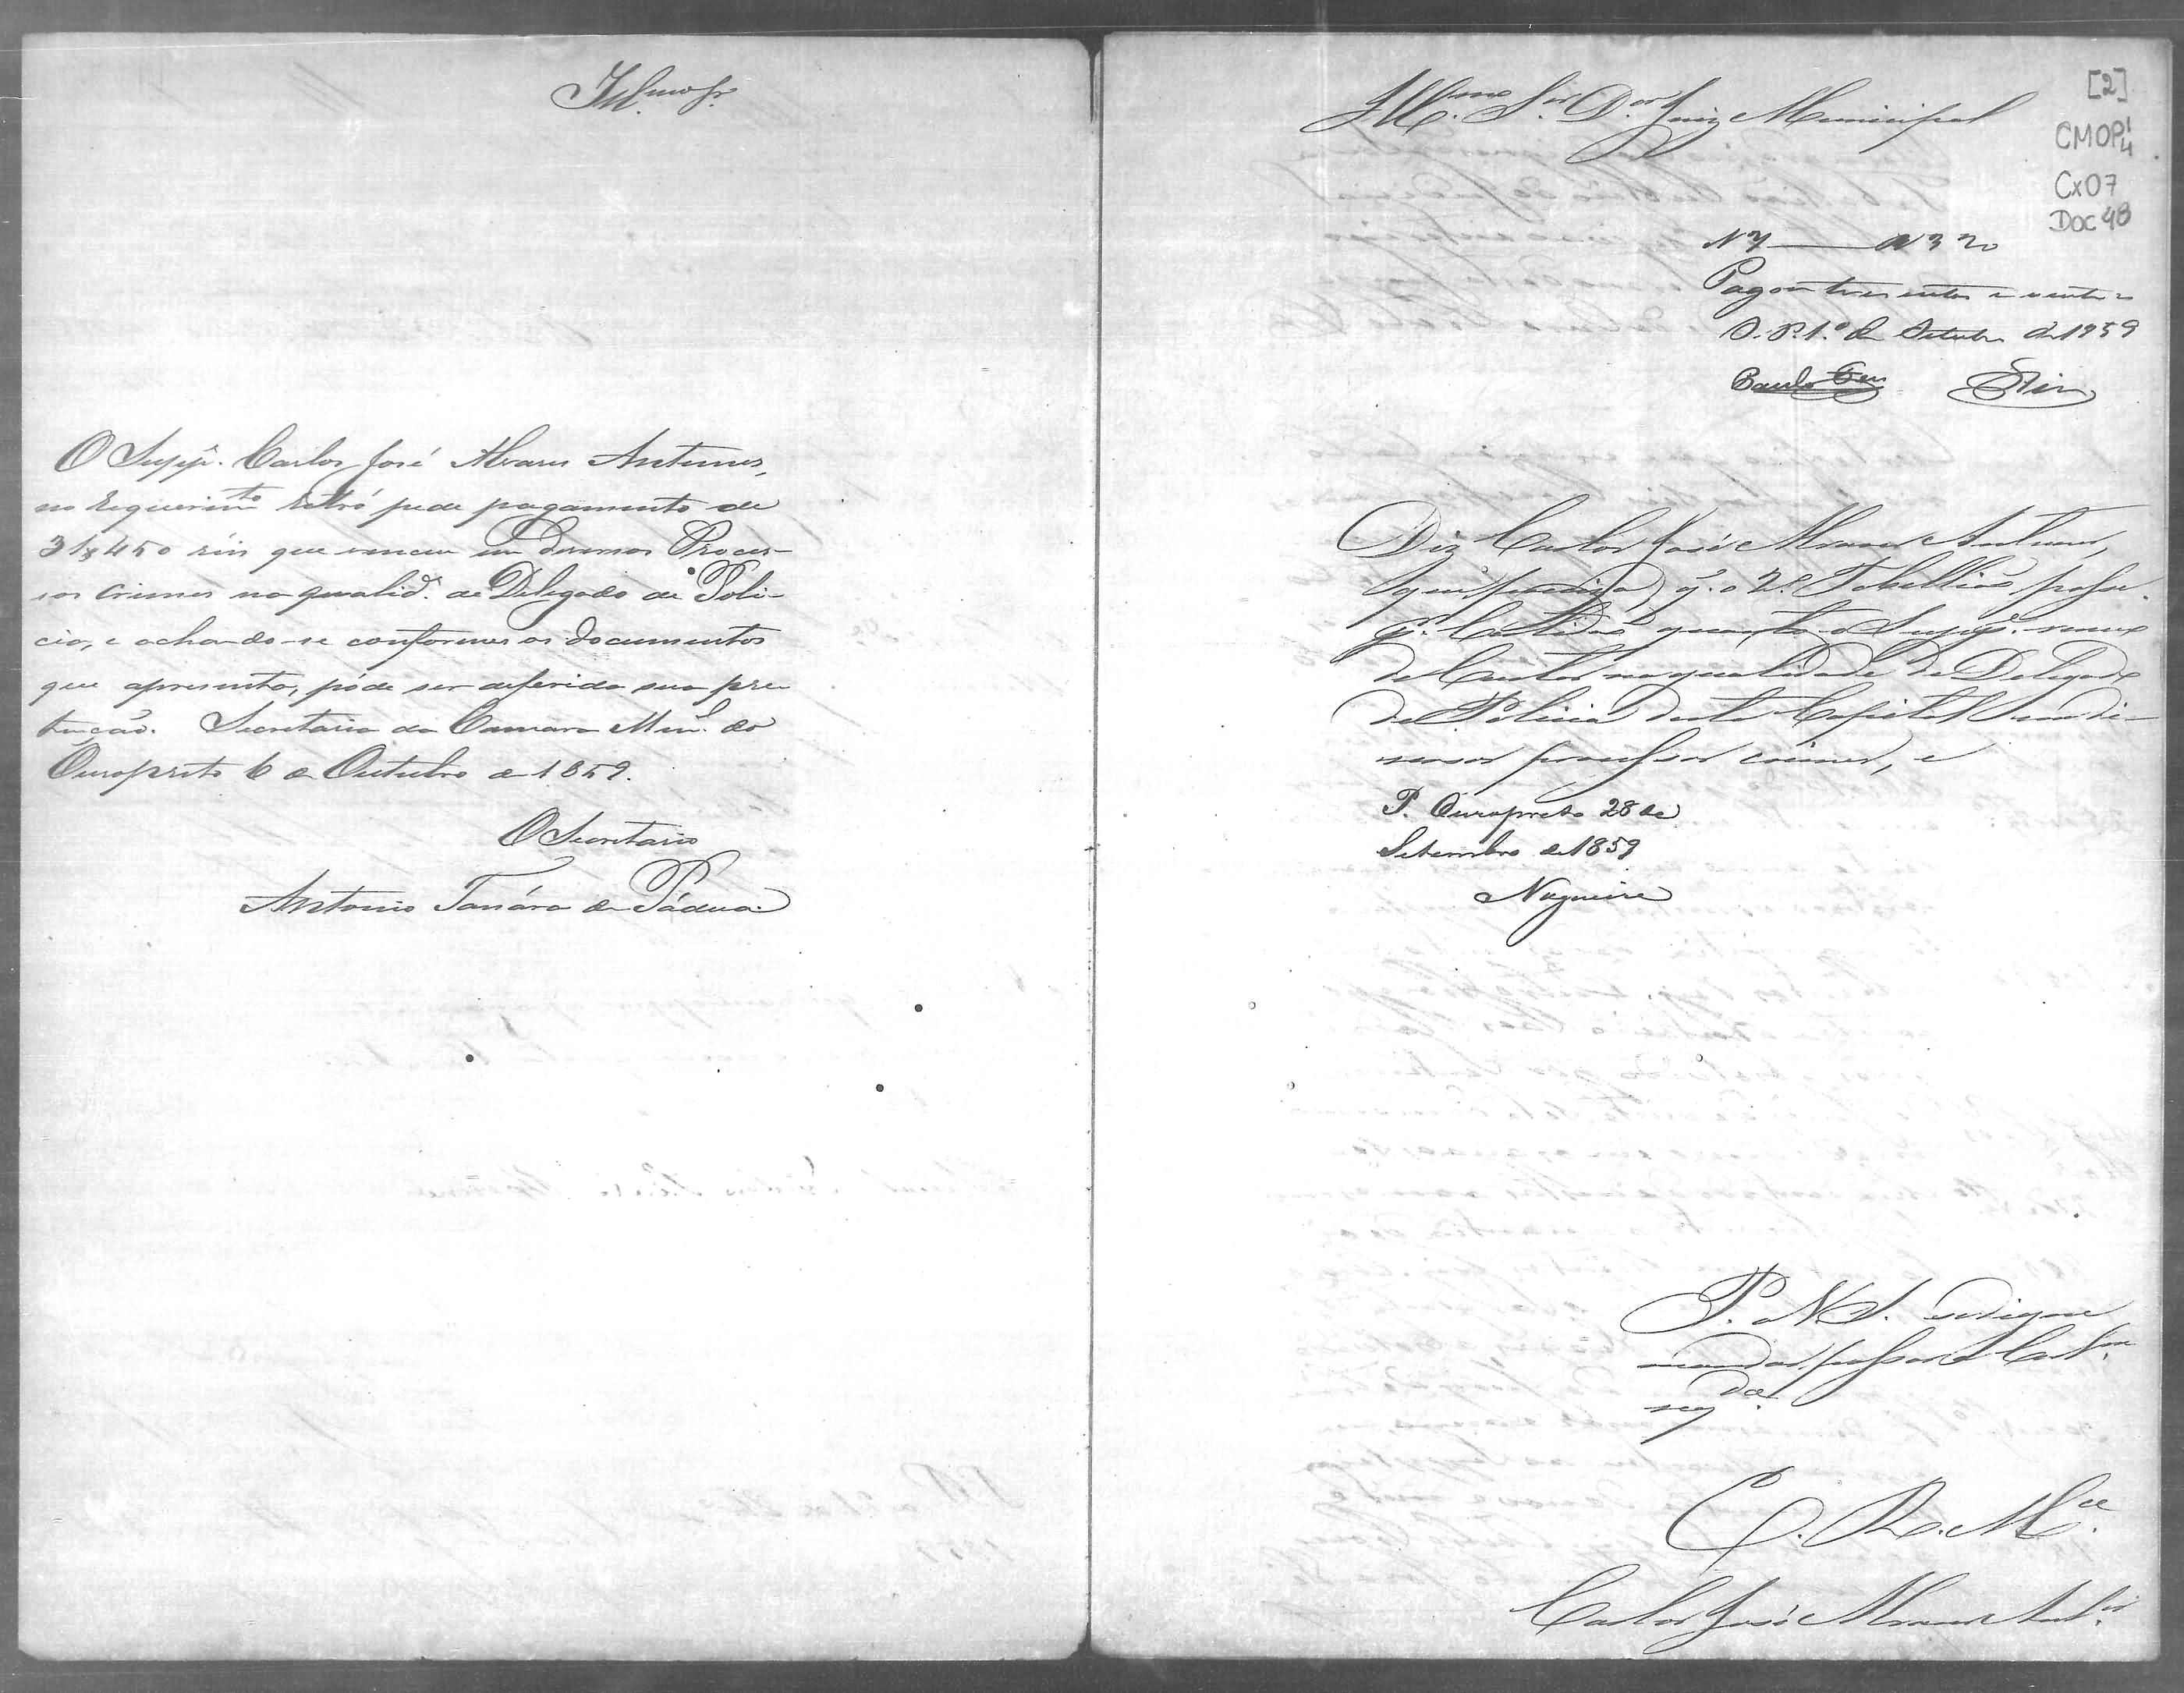 Illmo Sr.
O Suppe. Carlos José Alvares Antunes,
no requerimto retró pede pagamento de
31$450 réis que venceu em diversos Proces-
sos crimes na qualide. de Delegado de Poli-
cia, e achando-se conformes os documentos
que apresenta, póde ser deferida sua pre
tenção. Secretaria da Camara Munl. do
Ouropreto 6 de Outubro de 1859.
O Secretario
Antonio de Pádua
[2]
CMOP
Cx07
Doc 48
Illmo. Sr. Dor. Juiz Municipal
N 7 320
Pagou tresentos e vinte rs
O. P. 1.º de de 1859
Diz Carlos José Alvares Antunes,
q. o 2.º Tabellião
q. Certidão quanto o Suppe.
de Custas na qualidade de Delegado
de Policia desta Capital em di-
versos processos crimes, e
P. Ouropreto 28 de
Setembro de 1859
Nogueira
P. a V. S. se digne
mandar passar a Certm.
E. R. Mce.
Carlos José Alvares Antes.